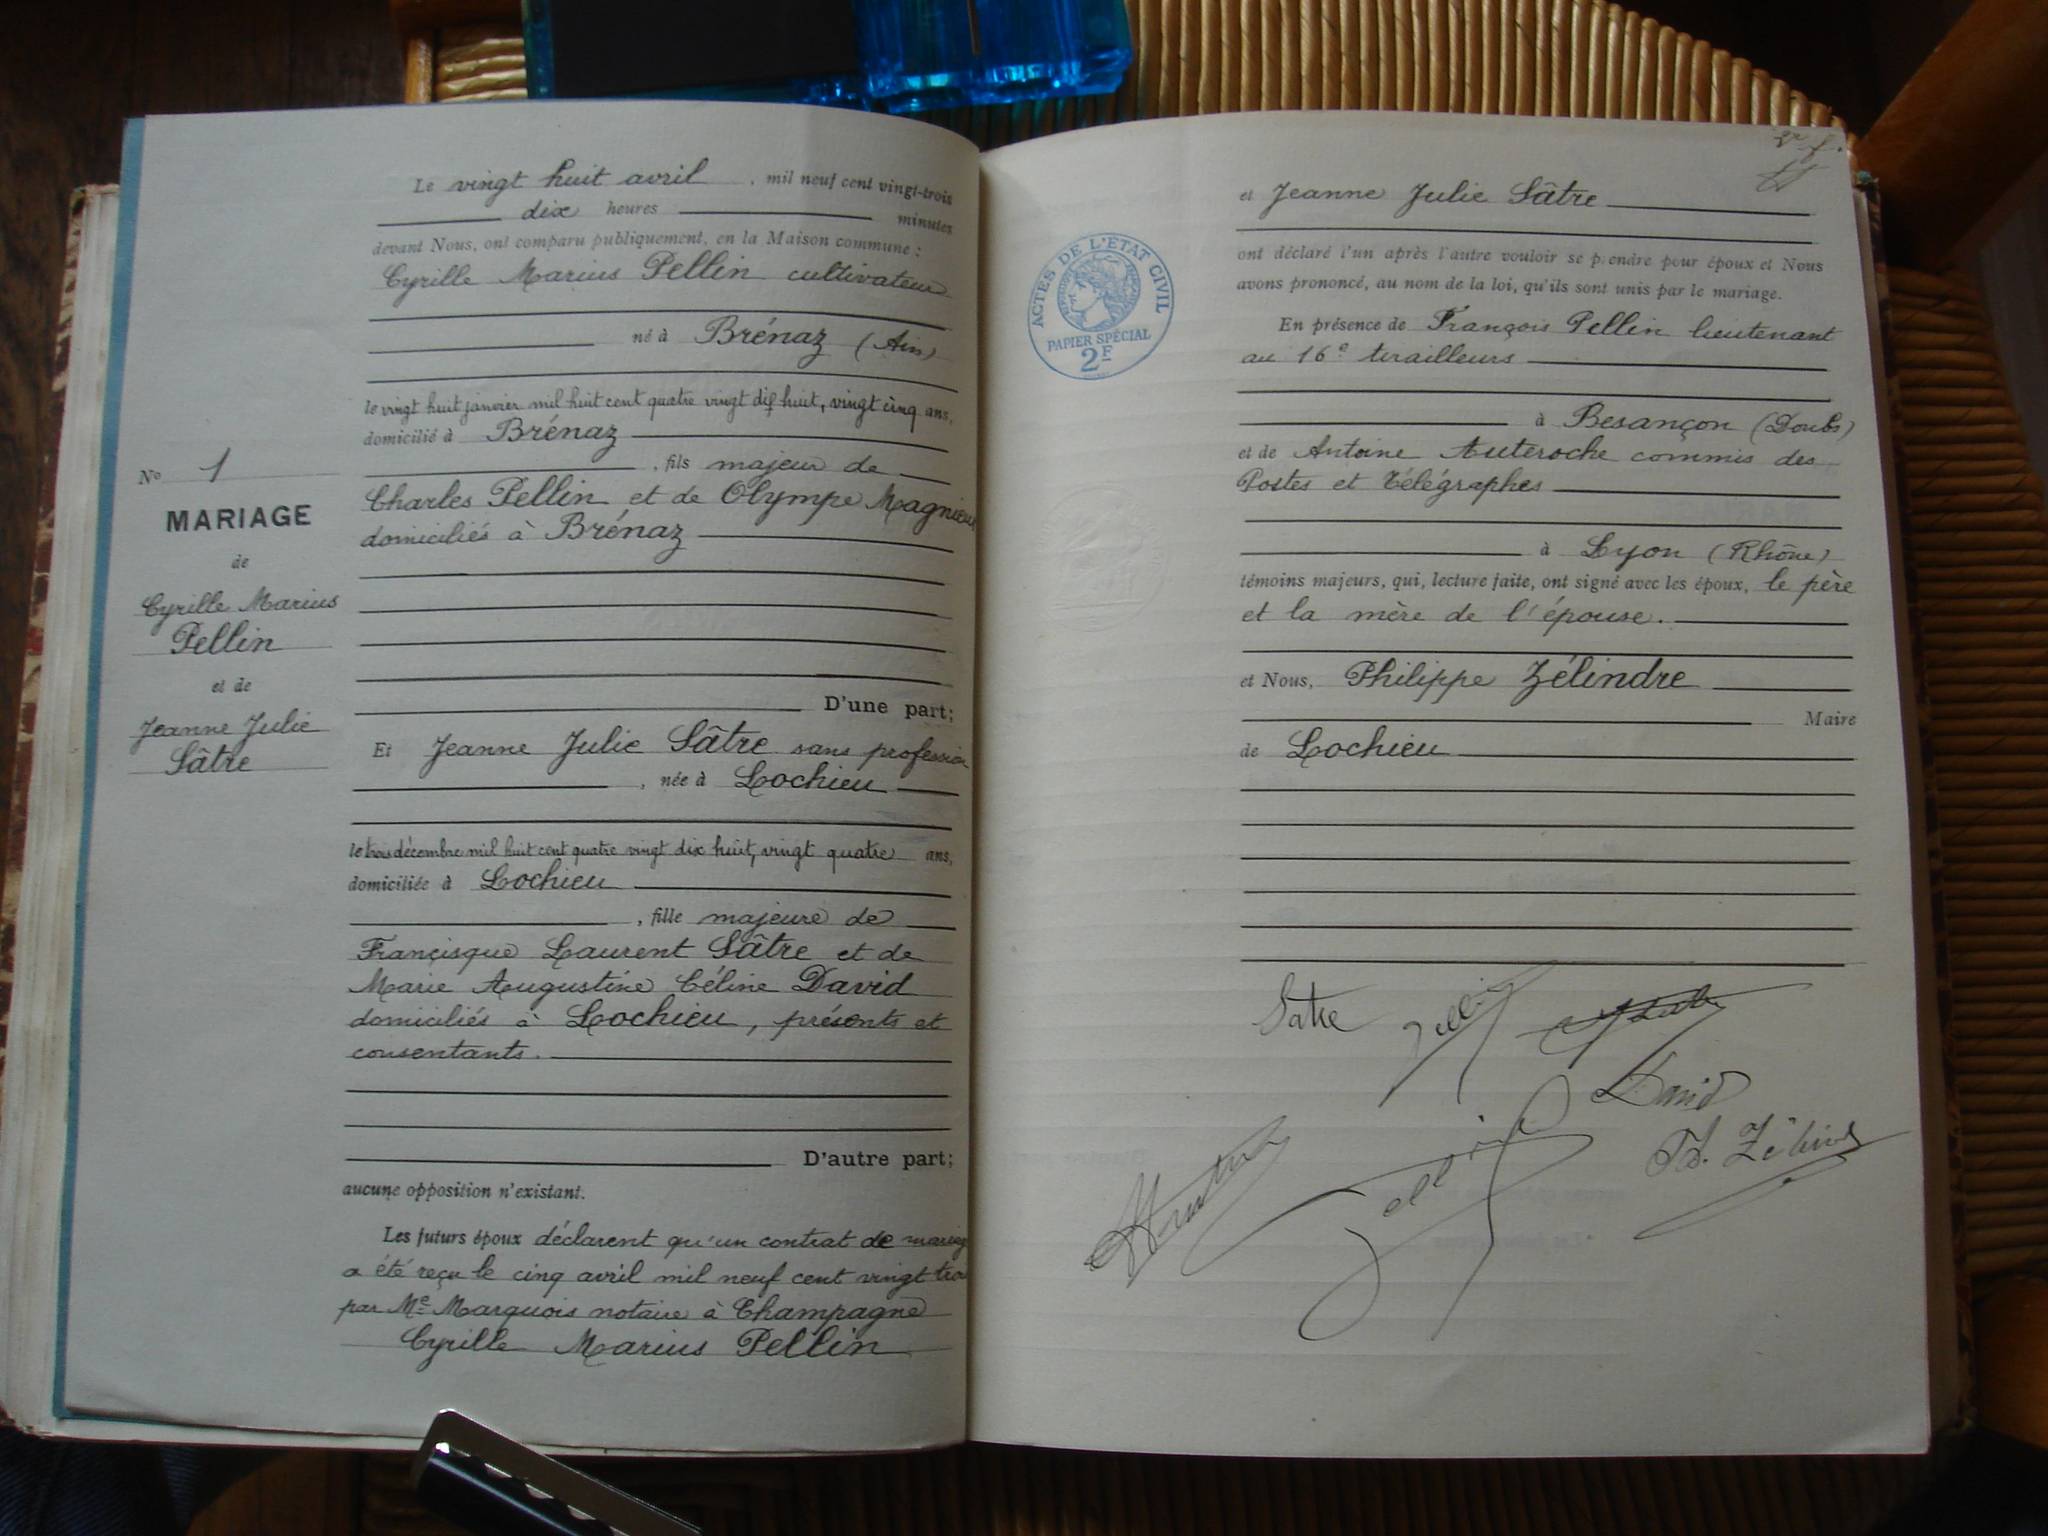 Le vingt huit avril, mil neuf cent vingt-trois
dix heures minutes
devant Nous, ont comparu publiquement, en la Maison commune :
Cyrille Marius Pellin cultivateur
né à Brénaz (Ain)
le vingt huit janvier mil huit cent quatre vingt dix huit, vingt cinq ans,
domicilié à Brénaz
, fils majeur de
Charles Pellin et de Olympe Magnieu
domiciliés à Brénaz
D'une part;
Et Jeanne Julie Sâtre sans profession
, née à Lochieu
le trois décembre mil huit cent quatre vingt dix huit, vingt quatre ans,
domiciliée à Lochieu
, fille majeure de
Françisque Laurent Sâtre et de
Marie Augustine Céline David
domiciliés à Lochieu, présents et
consentants.
D'autre part;
aucune opposition n'existant.
Les futurs époux déclarent qu'un contrat de mariage
a été reçu le cinq avril mil neuf cent vingt trois
par Me Marquois notaire à Champagne
Cyrille Marius Pellin
No 1
MARIAGE
de
Cyrille Marius
Pellin
et de
Jeanne Julie
Sâtre
et Jeanne Julie Sâtre
ont déclaré l'un après l'autre vouloir se prendre pour époux et Nous
avons prononcé, au nom de la loi, qu'ils sont unis par le mariage.
En présence de François Pellin lieutenant
au 16e tirailleurs
à Besançon (Doubs)
et de Antoine Auteroche commis des
Postes et Télégraphes
à Lyon (Rhône)
témoins majeurs, qui, lecture faite, ont signé avec les époux, le père
et la mère de l'épouse.
et Nous, Philippe Zélindre
Maire
de Lochieu
ACTES DE L'ÉTAT CIVIL
PAPIER SPÉCIAL
2F
Satre Pellin
David
Pellin